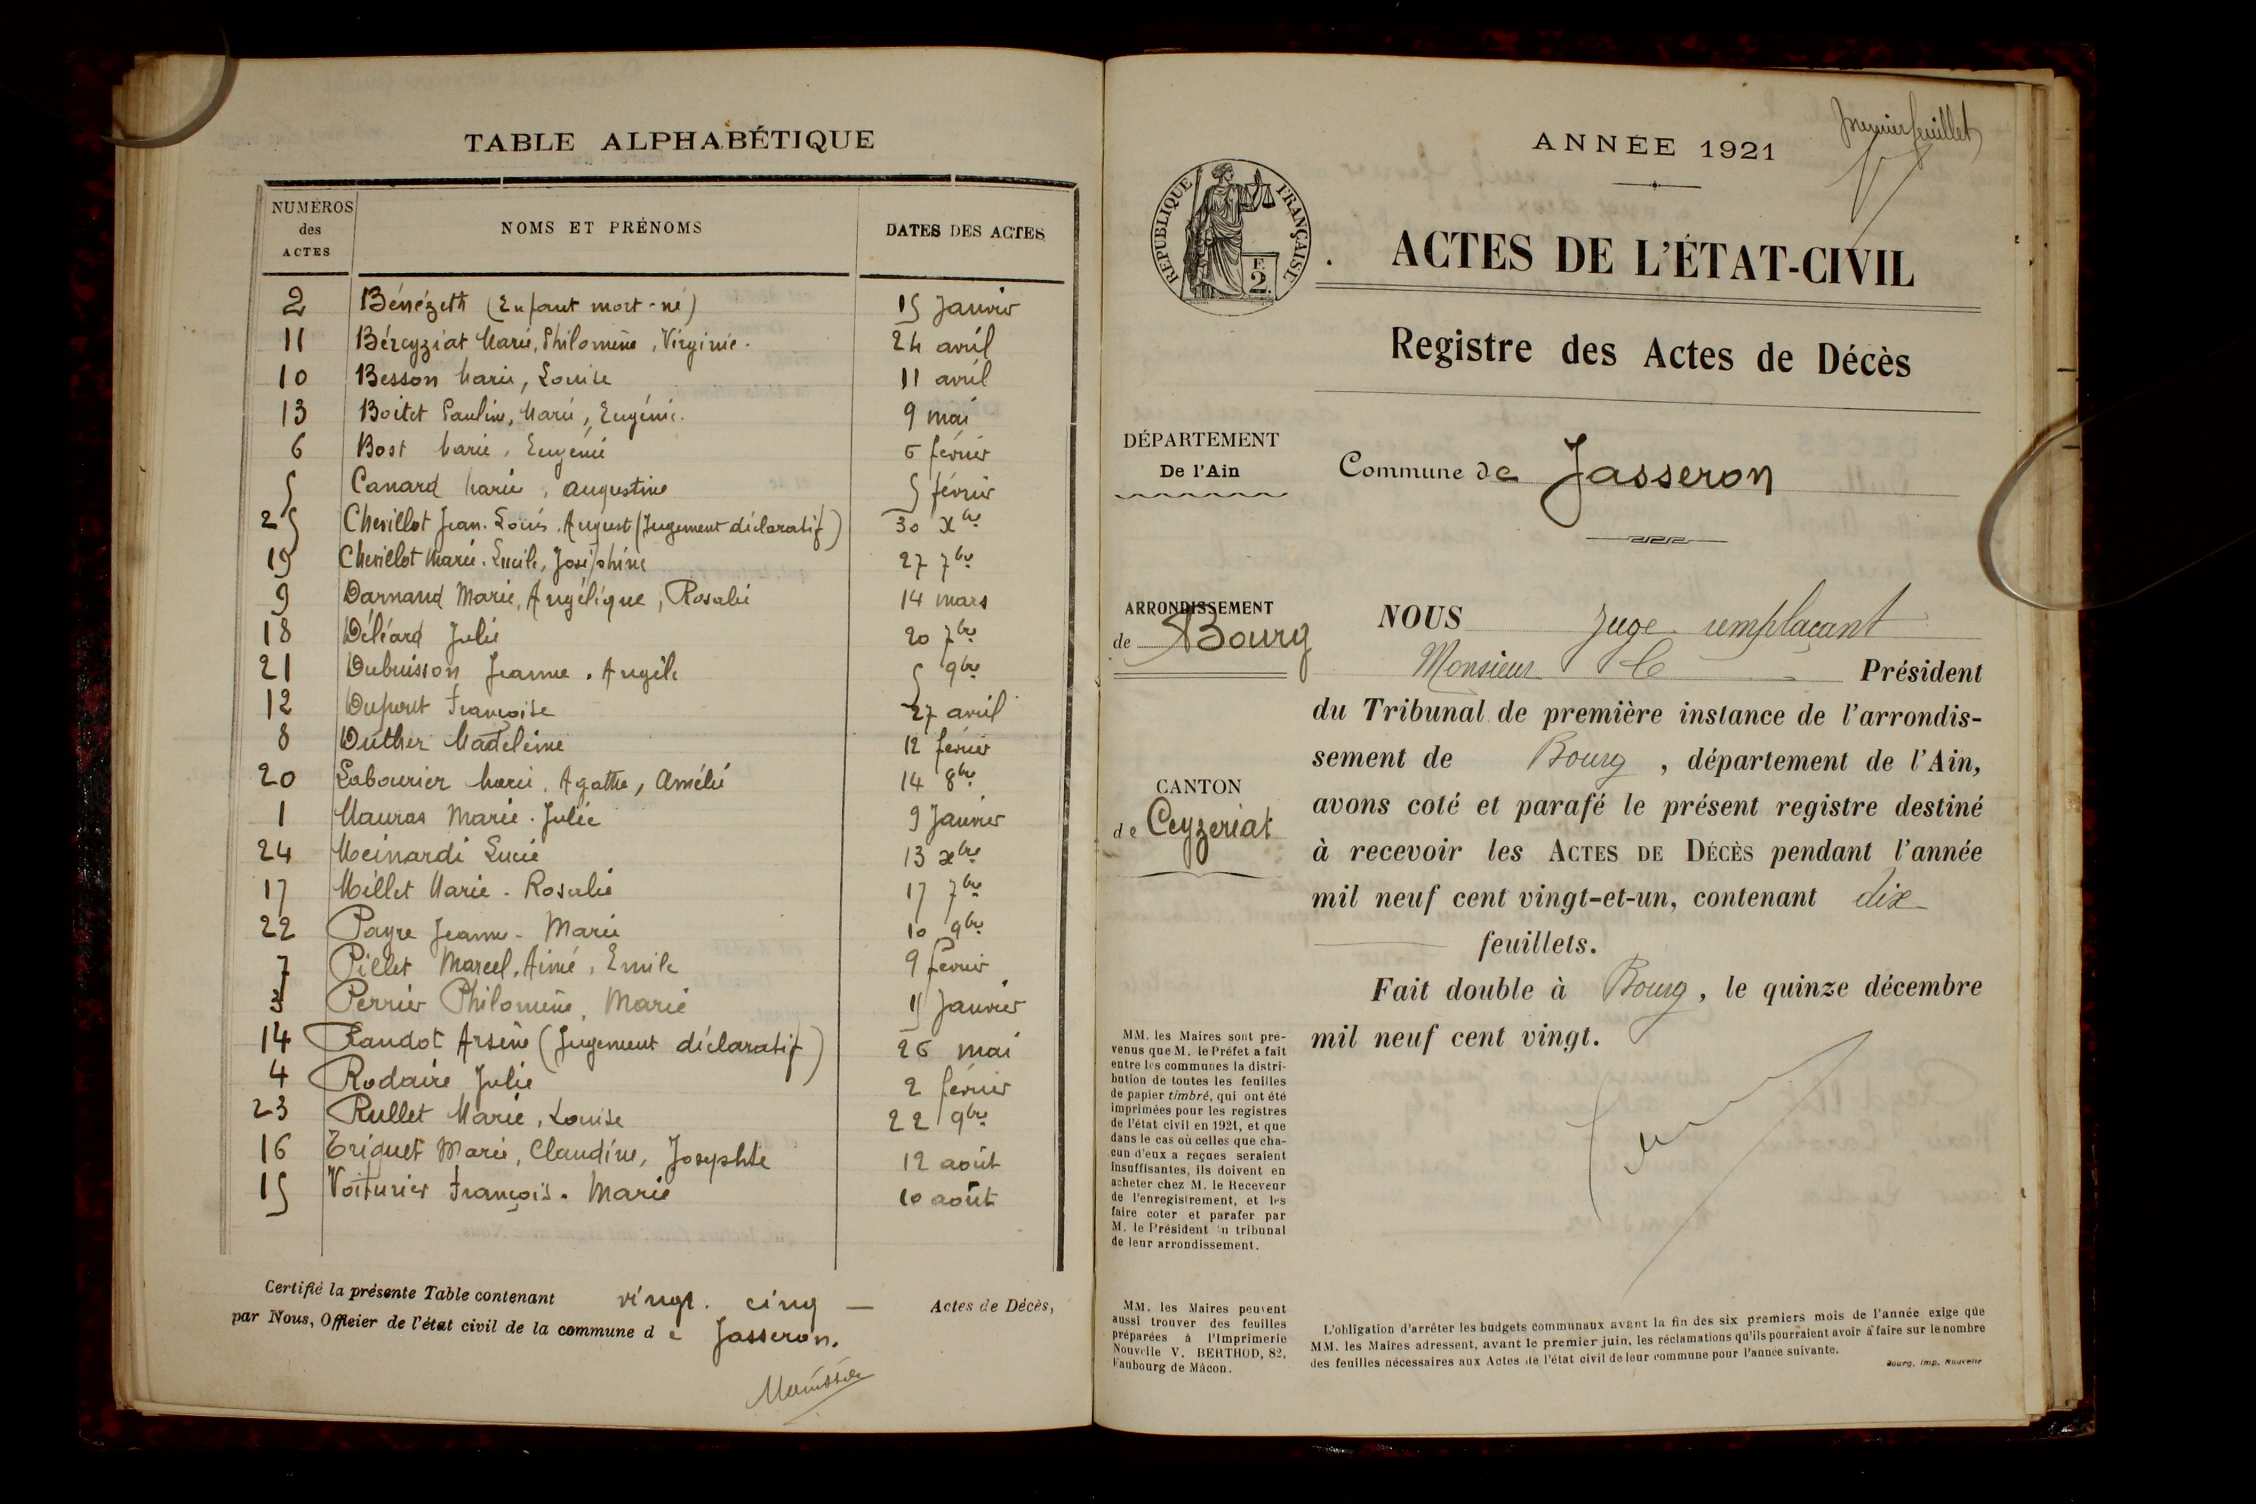 TABLE ALPHABÉTIQUE
NUMÉROS des ACTES NOMS ET PRÉNOMS DATES DES ACTES
2 Bénézeth (Enfant mort-né) 15 Janvier
11 Béreyziat Marie, Philomène, Virginie. 24 avril
10 Besson Marie, Louise 11 avril
13 Boitet Pauline, Marie, Eugénie. 9 mai
6 Bost Marie, Eugénie 6 février
5 Canard Marie, Augustine 5 février
25 Chevillot Jean. Louis. August (Jugement déclaratif) 30 xbre
19 Chevillot Marie. Lucile, Joséphine 27 7bre
9 Darnand Marie, Angélique, Rosalie 14 mars
18 Déléard Julie 20 7bre
21 Dubuisson Jeanne. Angèle 5 9bre
12 Duporet Françoise 27 avril
8 Duther Madeleine 12 février
20 Labourier Marie, Agathe, Amélie 14 8bre
1 Mauras Marie. Julie 9 Janvier
24 Meinardi Lucie 13 xbre
17 Millet Marie - Rosalie 17 7bre
22 Payre Jeanne - Marie 10 9bre
7 Pillet Marcel, Aimé, Emile 9 février
3 Perrier Philomène, Marie 15 Janvier
14 Raudot Arsène (Jugement déclaratif) 26 mai
4 Rodaire Julie 2 février
23 Rullet Marie, Louise 22 9bre
16 Triquet Marie, Claudine, Josephte 12 août
15 Voiturier François. Marie 10 août
Certifié la présente Table contenant vingt. cinq — Actes de Décès,
par Nous, Officier de l'état civil de la commune de Jasseron.
premier feuillet
ANNÉE 1921
RÉPUBLIQUE FRANÇAISE
F.
2
ACTES DE L'ÉTAT-CIVIL
Registre des Actes de Décès
DÉPARTEMENT
De l'Ain
Commune de Jasseron
ARRONDISSEMENT
de Bourg
CANTON
de Ceyzeriat
NOUS Juge remplaçant
Monsieur le Président
du Tribunal de première instance de l'arrondis-
sement de Bourg, département de l'Ain,
avons coté et parafé le présent registre destiné
à recevoir les ACTES DE DÉCÈS pendant l'année
mil neuf cent vingt-et-un, contenant dix
feuillets.
Fait double à Bourg, le quinze décembre
mil neuf cent vingt.
MM. les Maires sont pré-
venus que M. le Préfet a fait
entre les communes la distri-
bution de toutes les feuilles
de papier timbré, qui ont été
imprimées pour les registres
de l'état civil en 1921, et que
dans le cas où celles que cha-
cun d'eux a reçues seraient
insuffisantes, ils doivent en
acheter chez M. le Receveur
de l'enregistrement, et les
faire coter et parafer par
M. le Président du tribunal
de leur arrondissement.
MM. les Maires peuvent
aussi trouver des feuilles
préparées à l'Imprimerie
Nouvelle V. BERTHOD, 82,
Faubourg de Mâcon.
L'obligation d'arrêter les budgets communaux avant la fin des six premiers mois de l'année exige que
MM. les Maires adressent, avant le premier juin, les réclamations qu'ils pourraient avoir à faire sur le nombre
des feuilles nécessaires aux Actes de l'état civil de leur commune pour l'année suivante.
Bourg, Imp. Nouvelle